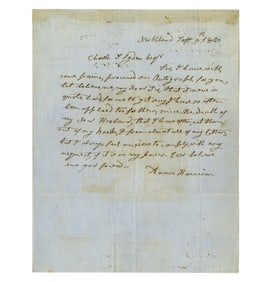 North Bend Sept 9th 1850
Charles F Ogden Esqr
Sir, I have with
some pains, procured an Autograph for you,
but believe me my Dear Sir, that it now is
quite hard for me to get any, I have so often
been applied to for them, since the death of
my Dear Husband, that I have often cut them
out of my Books, & from almost all of my Letters,
but I always feel anxious to comply with any
request, if it is in my power. Ever believe
me your friend
Anna Harrison